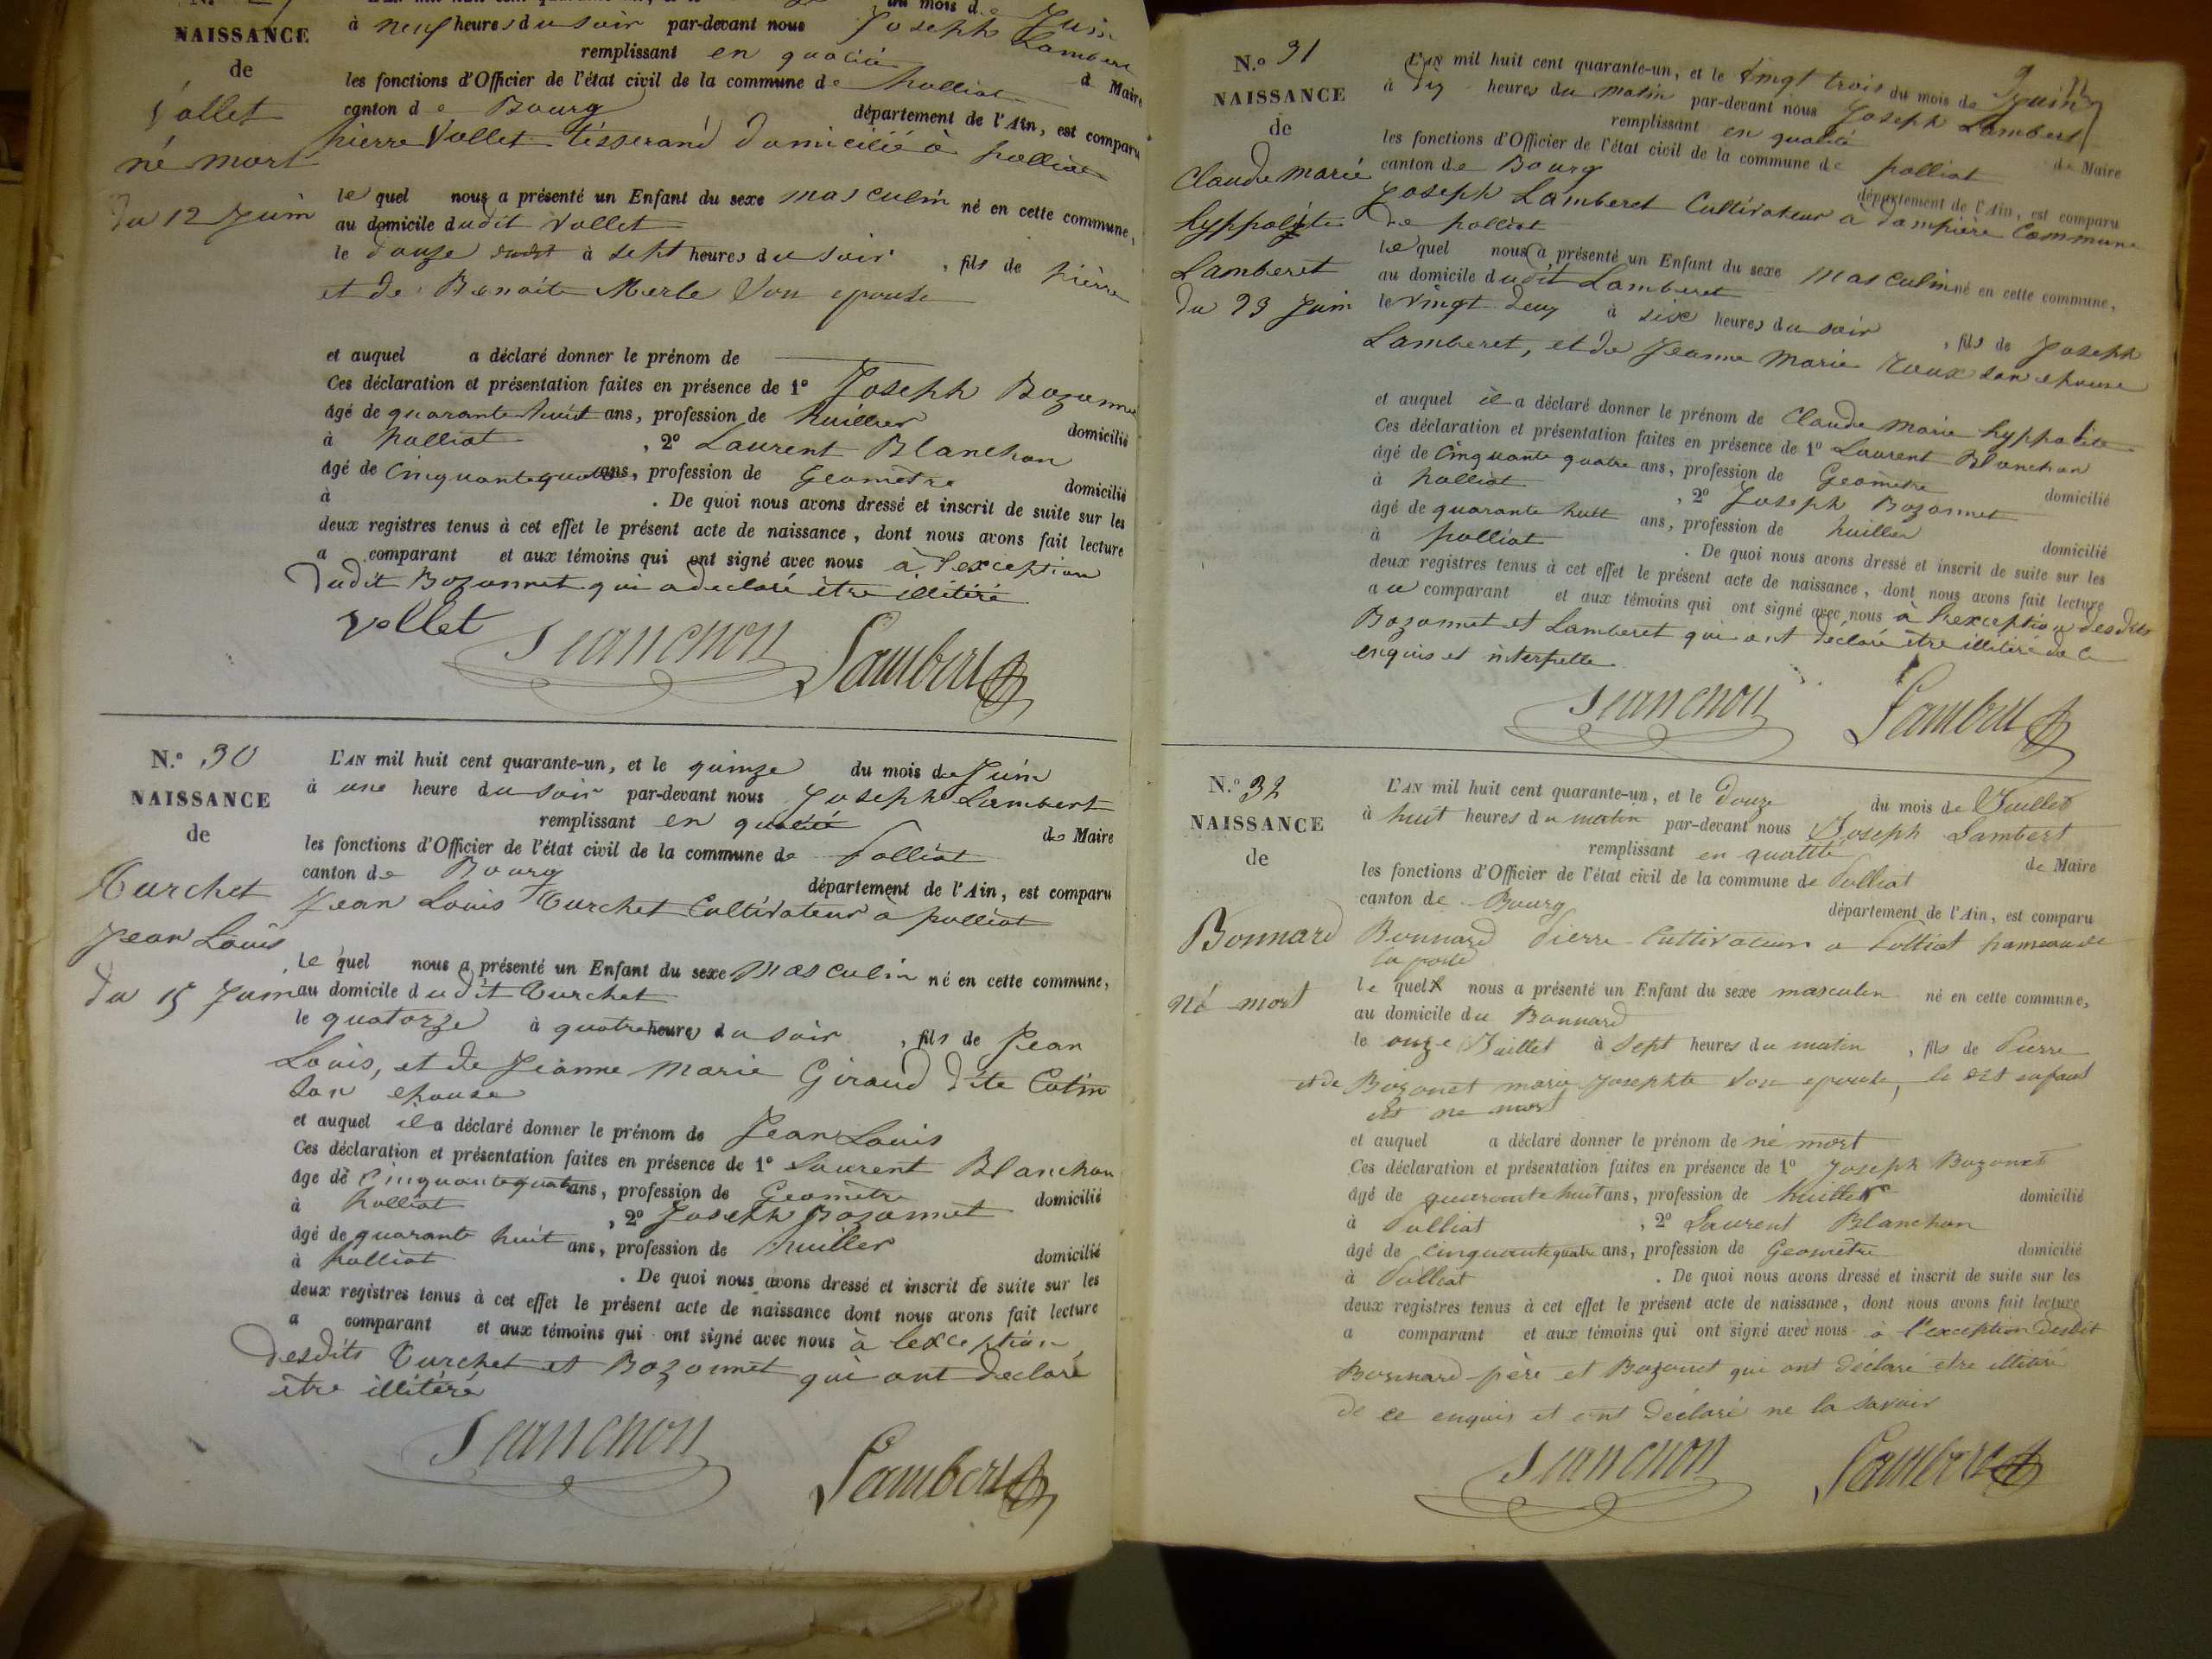 NAISSANCE
de
Vollet
né mort
du 12 Juin
du mois de Juin
à neuf heures du soir par-devant nous Joseph Lambert
remplissant en qualité de Maire
les fonctions d'Officier de l'état civil de la commune de polliat
canton de Bourg département de l'Ain, est comparu
pierre Vollet tisserand domicilié à polliat
le quel nous a présenté un Enfant du sexe masculin né en cette commune,
au domicile dudit Vollet
le douze dudit à sept heures du soir, fils de pierre
et de Benoite Merle son epouse
et auquel a déclaré donner le prénom de
Ces déclaration et présentation faites en présence de 1º Joseph Bozonnet
âgé de quarante huit ans, profession de huillier domicilié
à polliat, 2º Laurent Blanchon
âgé de cinquante quatre ans, profession de Geomètre domicilié
à . De quoi nous avons dressé et inscrit de suite sur les
deux registres tenus à cet effet le présent acte de naissance, dont nous avons fait lecture
a comparant et aux témoins qui ont signé avec nous à l'exception
dudit Bozonnet qui a declaré être illitéré
Vollet Blanchon Lambert
N.º 30
NAISSANCE
de
Curchet
Jean Louis
du 15 Juin
L'AN mil huit cent quarante-un, et le quinze du mois de Juin
à une heure du soir par-devant nous Joseph Lambert
remplissant en qualité de Maire
les fonctions d'Officier de l'état civil de la commune de Polliat
canton de Bourg département de l'Ain, est comparu
Jean Louis Curchet Cultivateur à polliat
le quel nous a présenté un Enfant du sexe masculin né en cette commune,
au domicile dudit Curchet
le quatorze à quatre heures du soir, fils de Jean
Louis, et de Jeanne Marie Giraud dite Colin
son epouse
et auquel il a déclaré donner le prénom de Jean Louis
Ces déclaration et présentation faites en présence de 1º Laurent Blanchon
âge de cinquante quatre ans, profession de Geomètre domicilié
à Polliat, 2º Joseph Bozonnet
âgé de quarante huit ans, profession de huillier domicilié
à polliat . De quoi nous avons dressé et inscrit de suite sur les
deux registres tenus à cet effet le présent acte de naissance dont nous avons fait lecture
a comparant et aux témoins qui ont signé avec nous à lexception
desdits Curchet et Bozonnet qui ont declaré
être illitéré
Blanchon Lambert
N.º 31
NAISSANCE
de
Claude marie
hyppolite
Lamberet
du 23 Juin
L'AN mil huit cent quarante-un, et le vingt trois du mois de Juin
à dix heures du matin par-devant nous Joseph Lambert
remplissant en qualité de Maire
les fonctions d'Officier de l'état civil de la commune de polliat
canton de Bourg département de l'Ain, est comparu
Joseph Lamberet Cultivateur à dompière Commune
de polliat
le quel nous a présenté un Enfant du sexe masculin né en cette commune,
au domicile dudit Lamberet
le vingt deux à six heures du soir, fils de Joseph
Lamberet, et de Jeanne Marie Roux son epouse
et auquel il a déclaré donner le prénom de Claude Marie hyppolite
Ces déclaration et présentation faites en présence de 1º Laurent Blanchon
âgé de cinquante quatre ans, profession de Geomètre domicilié
à polliat, 2º Joseph Bozonnet
âgé de quarante huit ans, profession de huillier domicilié
à polliat . De quoi nous avons dressé et inscrit de suite sur les
deux registres tenus à cet effet le présent acte de naissance, dont nous avons fait lecture
au comparant et aux témoins qui ont signé avec nous à l'exception desdits
Bozonnet et Lamberet qui ont declaré être illitéré de ce
enquis et interpellé
Blanchon Lambert
N.º 32
NAISSANCE
de
Bonnard
né mort
L'AN mil huit cent quarante-un, et le Douze du mois de Juillet
à huit heures du matin par-devant nous Joseph Lambert
remplissant en qualité de Maire
les fonctions d'Officier de l'état civil de la commune de Polliat
canton de Bourg département de l'Ain, est comparu
Bonnard Pierre Cultivateur a Polliat hameau de
la poste
le quel nous a présenté un Enfant du sexe masculin né en cette commune,
au domicile du Bonnard
le onze Juillet à sept heures du matin, fils de Pierre
et de Bozonet marie Josephte son epouse, le dit enfant
est né mort
et auquel a déclaré donner le prénom de né mort
Ces déclaration et présentation faites en présence de 1º Joseph Bozonet
âgé de quarante huit ans, profession de huillier domicilié
à Polliat, 2º Laurent Blanchon
âgé de cinquante quatre ans, profession de Geomètre domicilié
à Polliat . De quoi nous avons dressé et inscrit de suite sur les
deux registres tenus à cet effet le présent acte de naissance, dont nous avons fait lecture
a comparant et aux témoins qui ont signé avec nous à l'exception desdit
Bonnard père et Bozonet qui ont déclaré etre illitéré
de ce enquis et ont déclaré ne la savoir
Blanchon Lambert